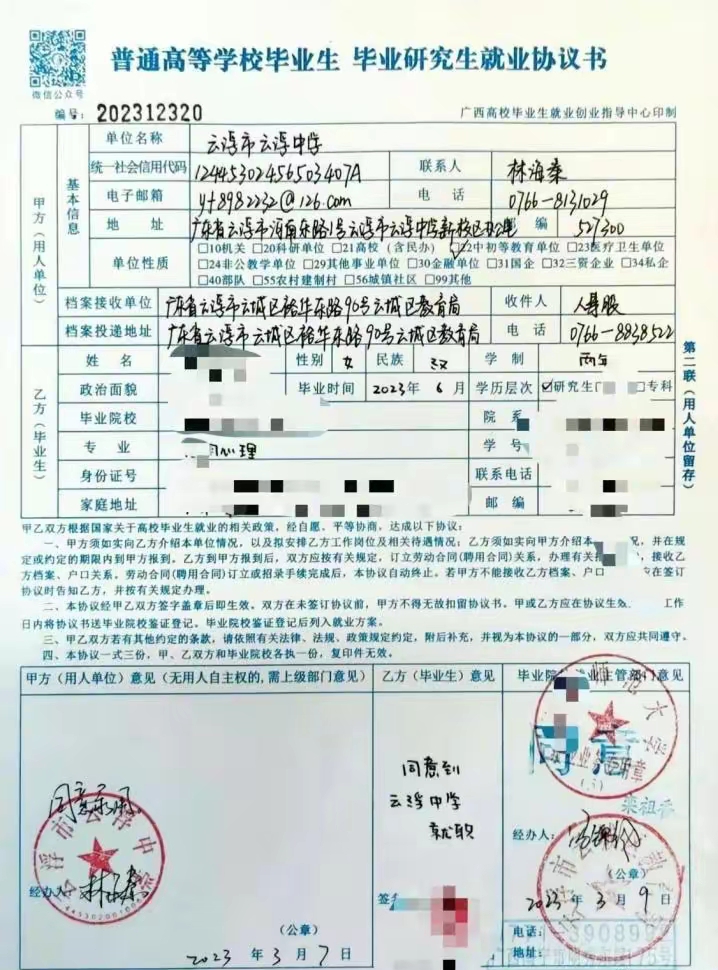 普通高等学校毕业生 毕业研究生就业协议书
微信公众号
编号: 202312320
广西高校毕业生就业创业指导中心印制
甲方(用人单位)
基本信息
单位名称 云浮市云浮中学
统一社会信用代码 12445302456503407A 联系人 林海燊
电子邮箱 yf8982232@126.com 电话 0766-8131029
地址 广东省云浮市河南东路1号云浮市云浮中学新校区办公室 邮编 527300
单位性质
□10机关 □20科研单位 □21高校(含民办) ☑22中初等教育单位 □23医疗卫生单位
□24非公教学单位 □29其他事业单位 □30金融单位 □31国企 □32三资企业 □34私企
□40部队 □55农村建制村 □56城镇社区 □99其他
档案接收单位 广东省云浮市云城区裕华东路90号云城区教育局 收件人 人事股
档案投递地址 广东省云浮市云城区裕华东路90号云城区教育局 电话 0766-8838522
乙方(毕业生)
姓名 性别 女 民族 汉 学制 两年
政治面貌 毕业时间 2023年6月 学历层次 ☑研究生□ □专科
毕业院校 院系
专业 心理 学号
身份证号 联系电话
家庭地址 邮编
第二联(用人单位留存)
甲乙双方根据国家关于高校毕业生就业的相关政策,经自愿、平等协商,达成以下协议:
一、甲方须如实向乙方介绍本单位情况,以及拟安排乙方工作岗位及相关待遇情况;乙方须如实向甲方介绍本 况,并在规
定或约定的期限内到甲方报到。乙方到甲方报到后,双方应按有关规定,订立劳动合同(聘用合同)关系,办理有关 ,接收乙
方档案、户口关系。劳动合同(聘用合同)订立或招录手续完成后,本协议自动终止。若甲方不能接收乙方档案、户口 应在签订
协议时告知乙方,并按有关规定办理。
二、本协议经甲乙双方签字盖章后即生效。双方在未签订协议前,甲方不得无故扣留协议书。甲或乙方应在协议生效 工作
日内将协议书送毕业院校鉴证登记。毕业院校鉴证登记后列入就业方案。
三、甲乙双方若有其他约定的条款,请依照有关法律、法规、政策规定约定,附后补充,并视为本协议的一部分,双方应共同遵守。
四、本协议一式三份,甲、乙双方和毕业院校各执一份,复印件无效。
甲方(用人单位)意见(无用人自主权的,需上级部门意见) 乙方(毕业生)意见 毕业院 业主管部门意见
同意录用
云浮市云浮中学
经办人:
(公章)
2023年3月7日
同意到
云浮中学
就职
签
师范大学
业业务专用章
同意
经办人:
(公章)
2023年3月9日
电话:
地址: